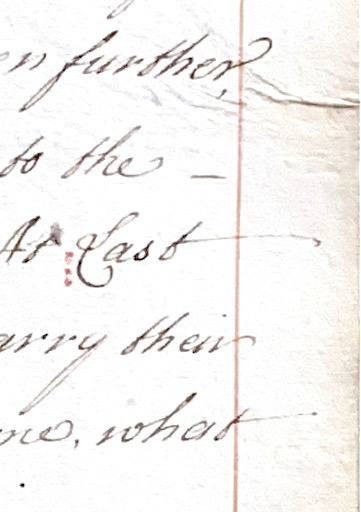 en further,
to the –
At Last
arry their
me, what